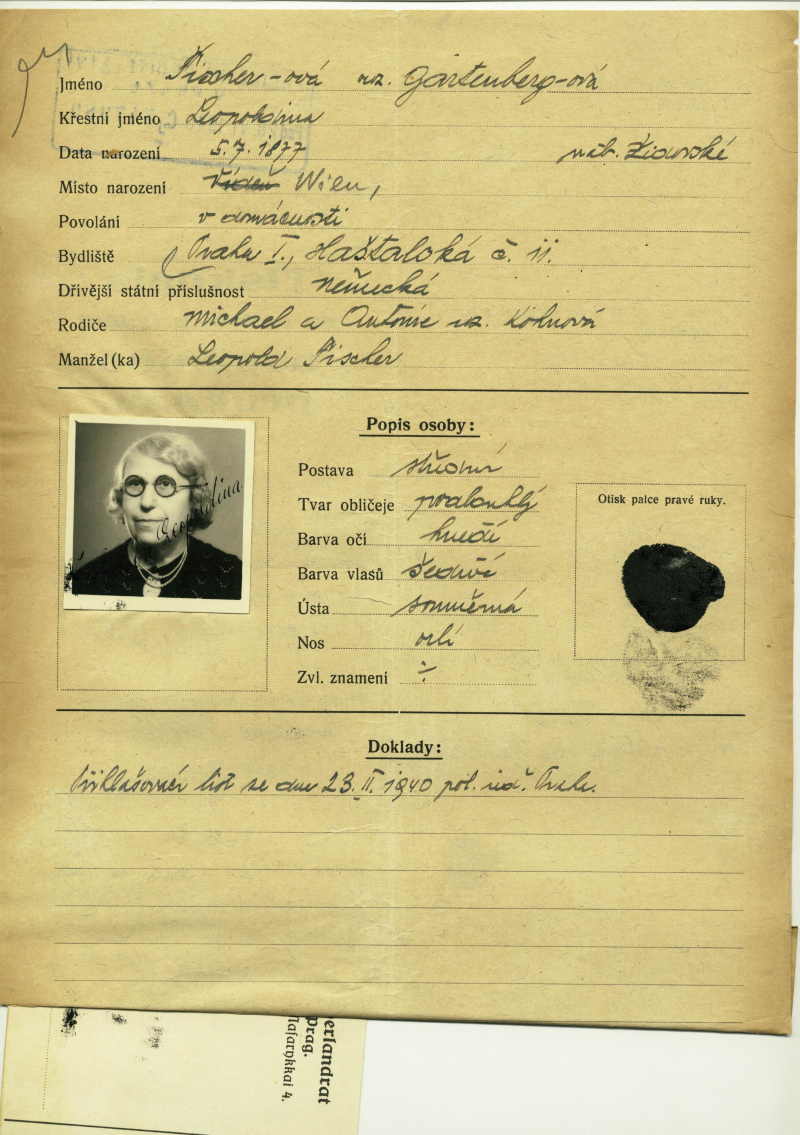 Jméno Fischer-ová roz. Gartenberg-ová
Křestní jméno Leopoldina
Data narození 5.7.1877 náb. Židovské
Místo narození Vídeň Wien,
Povolání v domácnosti
Bydliště Praha I., Haštalská č. 11.
Dřívější státní příslušnost německá
Rodiče Michael a Antonie roz. Kohnová
Manžel (ka) Leopold Fischer
Popis osoby:
Postava střední
Tvar obličeje podlouhlý
Barva očí hnědé
Barva vlasů šedivé
Ústa souměrná
Nos orlí
Zvl. znamení ÷
Otisk palce pravé ruky.
Leopoldina
Doklady:
Přihlašovací list ze dne 23. II. 1940 pol. řed. Praha.
erlandrat
Prag.
Masarykkai 4.